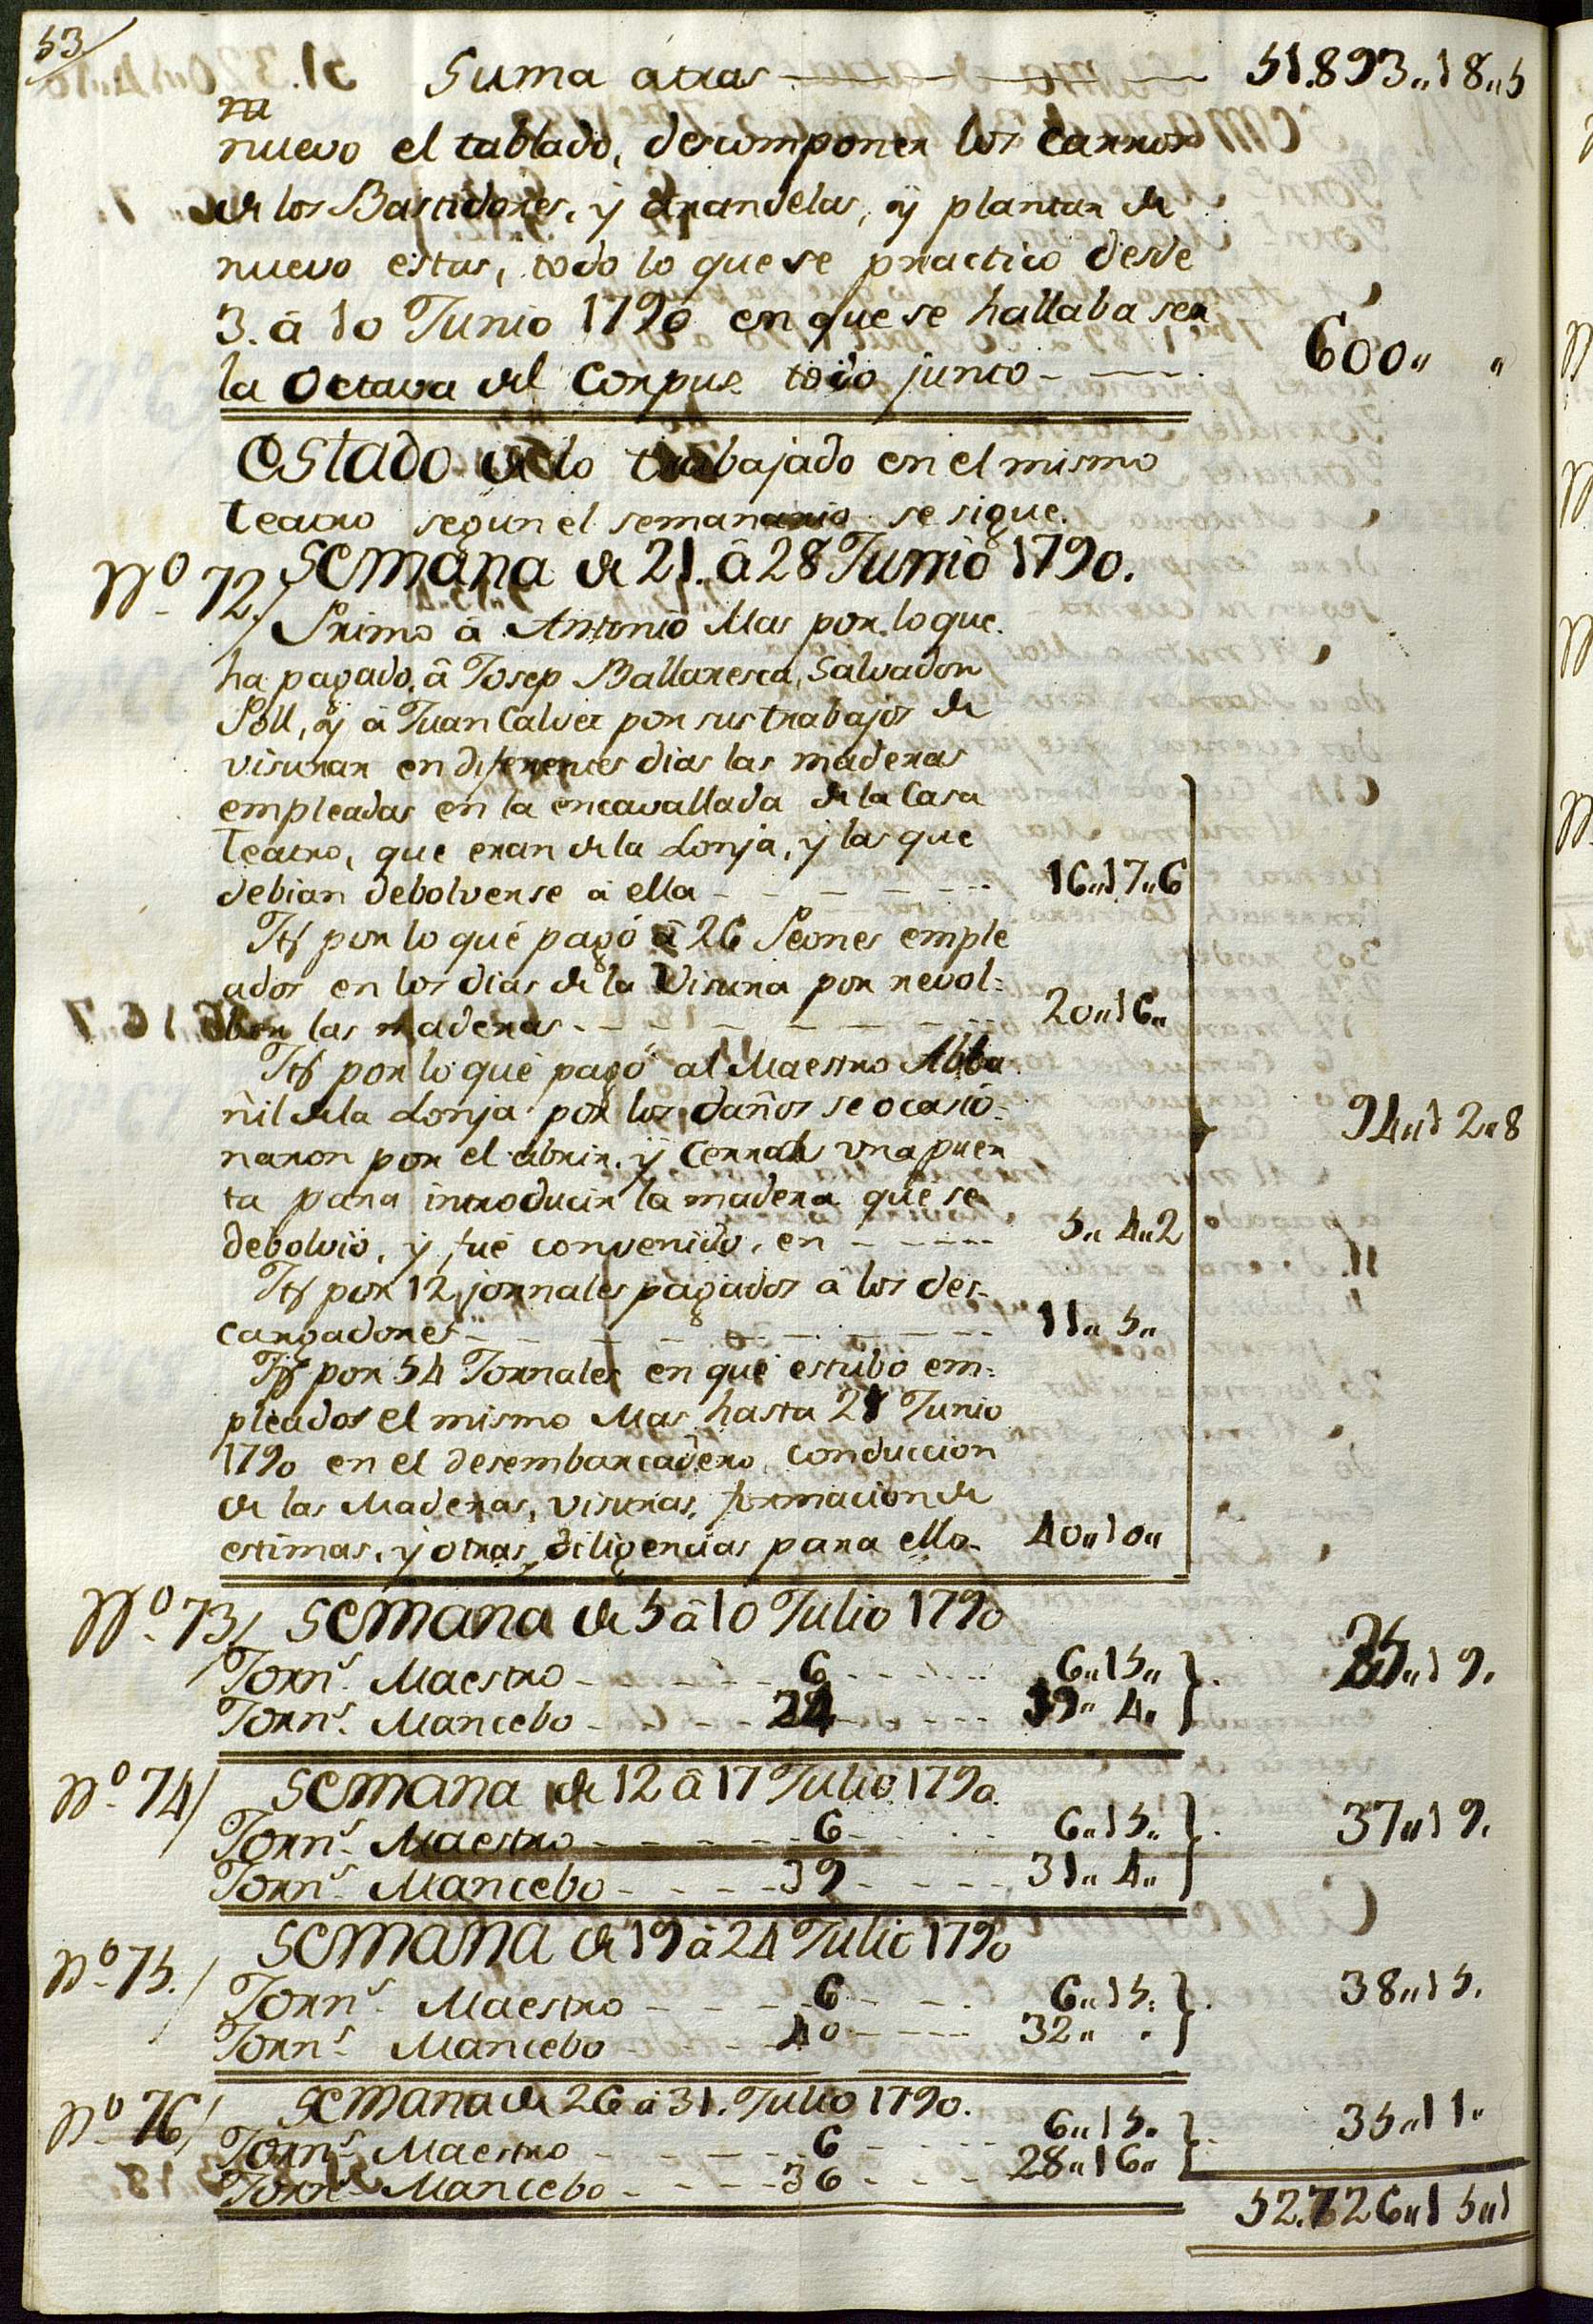 53
Suma atras 51.893,,18,,5
ra
nuevo el tablado, descomponer los carros
de los Bastidores, y Arandelas, y plantar de
nuevo estas, todo lo que se practicó desde
3. â 10 Junio 1790 en que se hallaba ser
la Octava del Corpus todo junto 600,, ,,
Estado de lo trabajado en el mismo
Teatro segun el semanario se sigue.
Nº 72/ Semana de 21. â 28 Junio 1790.
Primo â Antonio Mas por lo que
ha pagado â Josep Ballaresca, Salvador
Poll, y â Juan Calvet por sus trabajos de
visurar en diferentes dias las maderas
empleadas en la encavallada de la Casa
Teatro, que eran de la Lonja, y las que
debian debolverse â ella 16,,17,,6
Itt por lo que pagó â 26 Peones emple
ados en los dias de la Visura por revol=
ber las maderas 20,,16,,
Itt por lo que pagó al Maestro Alba
ñil de la Lonja por los daños se ocasio=
naron por el abrir, y Cerrar una puer
ta para introducir la madera que se
debolvió, y fué convenido, en 5,,4,,2
94,,12,,8
Itt por 12 jornales pagados â los des-
cargadores 11,,5,,
Itt por 54 Jornales en que estubo em=
pleados el mismo Mas hasta 28 Junio
1790 en el desembarcadero, conduccion
de las Maderas, visuras, formacion de
estimas, y otras diligencias para ello 40,,10,,
Nº 73/ Semana de 5 â 10 Julio 1790
Jorns. Maestro 6 6,,15,, 25,,19.
Jorns. Mancebo 24 19,,4,,
Nº 74/ Semana de 12 â 17 Julio 1790.
Jorns. Maestro 6 6,,15,, 37,,19.
Jorns. Mancebo 39 31,,4,,
Nº 75./ Semana de 19 â 24 Julio 1790
Jorns. Maestro 6 6,,15. 38,,15.
Jorns. Mancebo 40 32,, .
Nº 76/ Semana de 26 â 31. Julio 1790.
Jorns. Maestro 6 6,,15. 35,,11,,
Jorns. Mancebo 36 28,,16,,
52.726,,15,,1